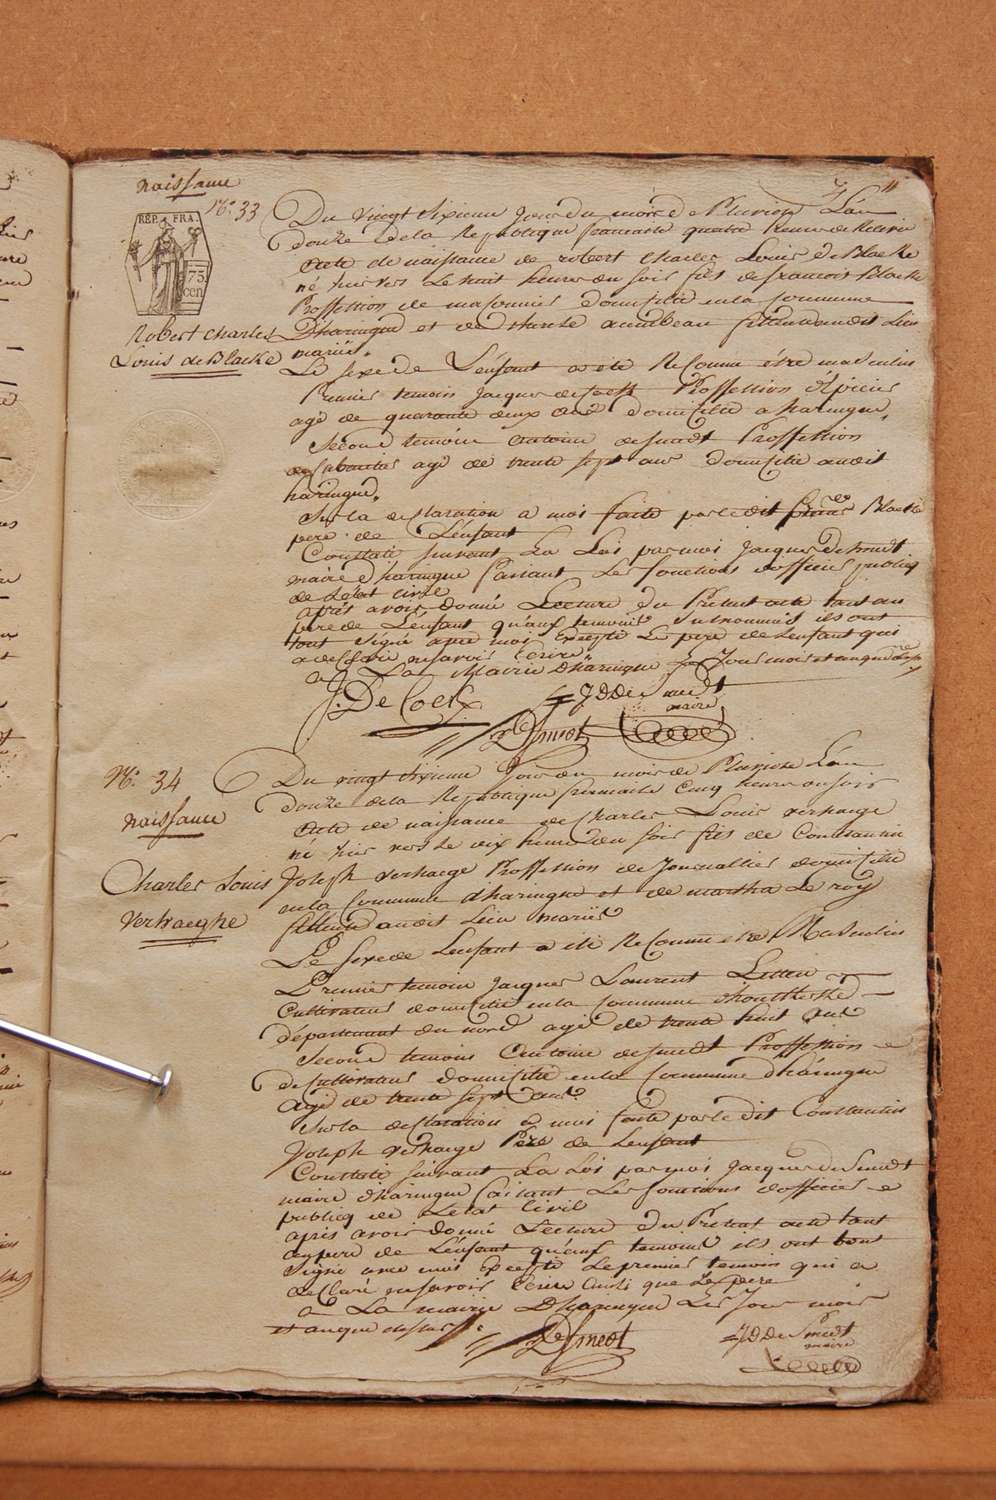 naissance
N.º 33
RÉP. FRA.
75
cen
Robert Charles
Louis de Blacke
Du vingt Sixieme Jour du mois de Pluviose L'an
douze de la Republique francaise quatre heures de Relevée
Acte de naissance de robert Charles Louis de Blacke
né hier vers Le huit heures du soir fils de francois Blacke
Proffession de domicilié en la Commune
Dharingue et de fileuse audit Lieu
mariés.
Le Sexe de L'enfant a eté Reconnu étre masculin
Premier temoin Jacques de Coeck Proffession
agé de quarante deux ans domicilié a haringue,
Second temoin Antoine desmedt Proffession
agé de trente sept ans domicilié audit
haringue.
Sur la declaration a moi faite par le dit Blacke
pere de L'enfant
Constaté suivant La Loi par moi Jacques De Smedt
maire dharingue faisant Les fonctions d'officier publicq
de L'état civil
apres avoir donné Lecture du Present acte tant au
pere de L'enfant qu'aux temoins ils ont
tout Signé avec moi Excepté Le pere de L'enfant qui
a declaré ne savoir Ecrire
a La Mairie dharingue Jour mois et an que
J: De Coeck
J D De Smedt
maire
D Smedt
N.º 34
naissance
Charles Louis
Verhaeghe
Du vingt Sixieme Jour du mois de Pluviose L'an
douze de la Republique francaise Cinq heures du soir
Acte de naissance de Charles Louis verhaege
né hier vers le dix heures du soir fils de Constantin
Joseph verhaege Proffession de Journallier domicilié
en la Commune dharingue et de martha Le roy
fileuse audit Lieu mariés
Le Sexe de L'enfant a été Reconnu etre Masculin
Premier temoin Jacques Laurent
Cultivateur domicilié en la Commune
département du nord agé de trente huit ans
Second temoin Antoine desmedt Proffession
de Cultivateur domicilié en la Commune dharingue
agé de trente sept ans
Sur la declaration a moi faite par le dit Constantin
Joseph verhaege Pére de L'enfant
Constaté suivant La Loi par moi Jacques de Smedt
maire dharingue faisant Les fonctions d'officier
publicq de L'etat Civil
apres avoir donné Lecture du Present acte tant
au pere de L'enfant qu'aux temoins ils ont tout
Signé avec moi Excepté Le premier temoin qui a
declaré ne savoir Ecrire ainsi que Le pere
a La mairie Dharingue Les Jour mois
et an que dessus.
D Smedt
J D De Smedt
maire